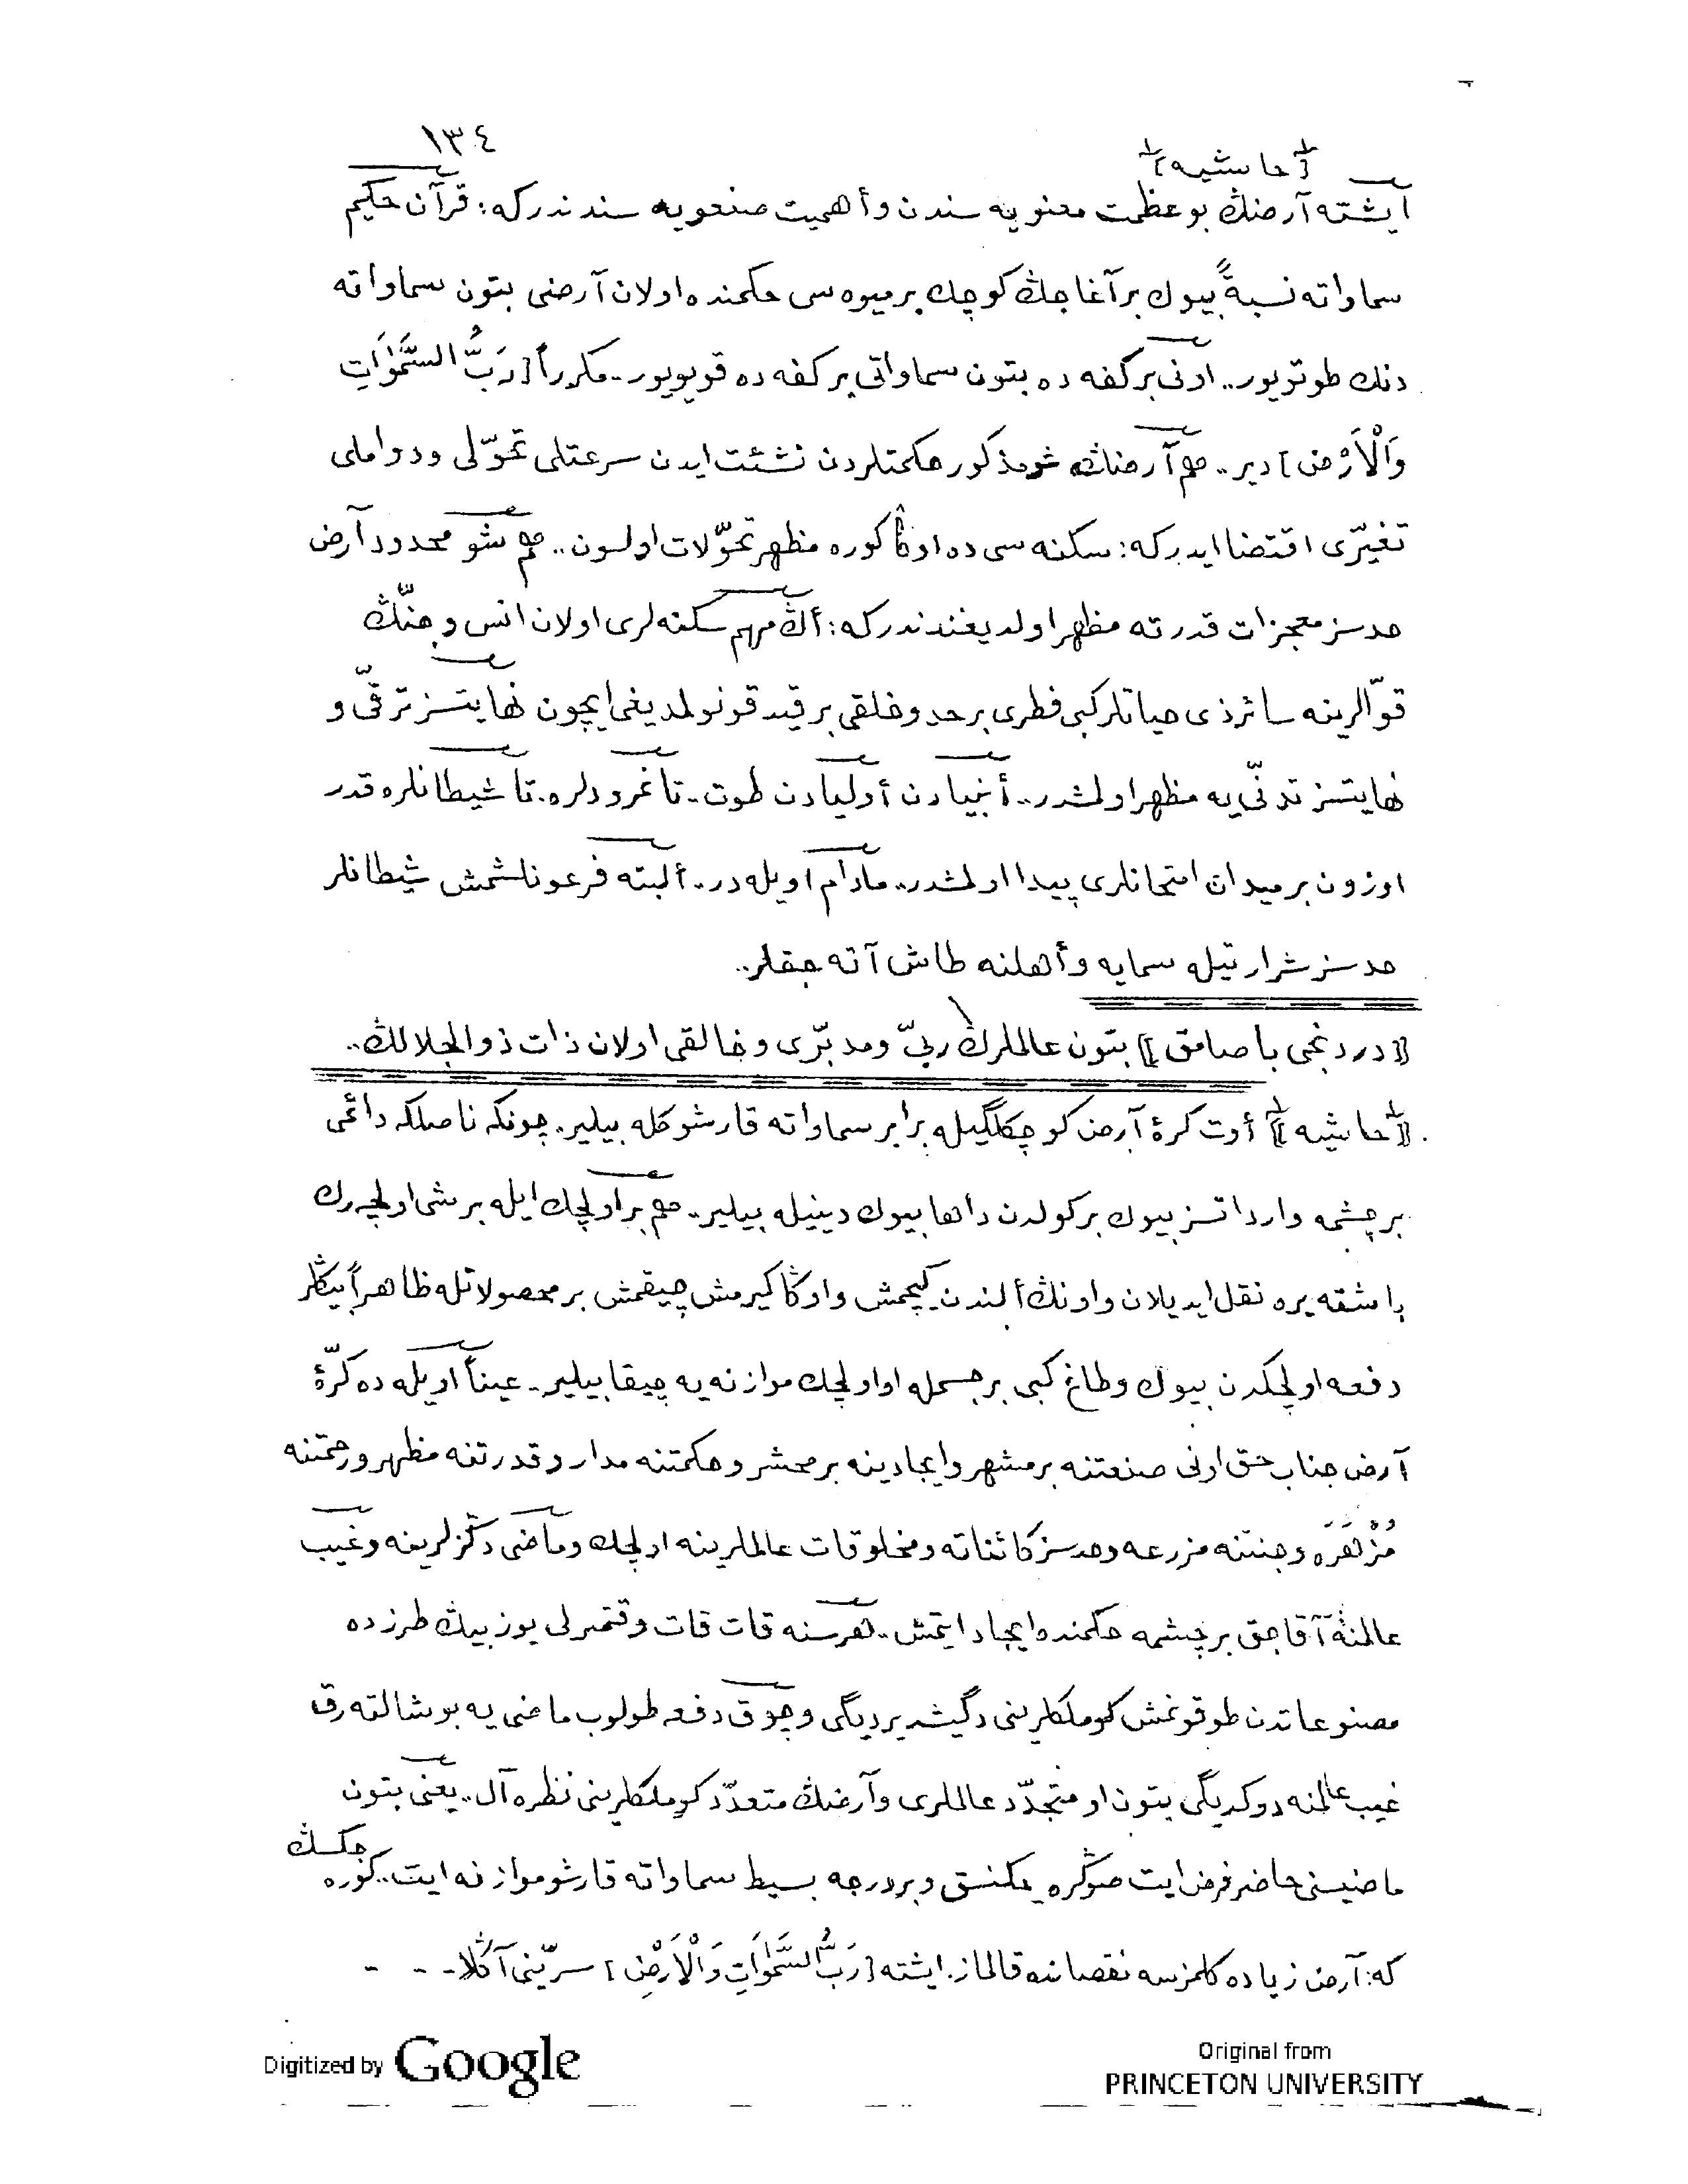 ١٣٤
[حاشيه]
ايشته آرضڭ بو عظمت معنويه سندن و أهميت صنعويه سندندركه: قرآن حكيم
سماواته نسبةً بيوك بر آغاجڭ كوچك بر ميوه سى حكمنده اولان آرضى بتون سماواته
دنك طوتويور.. اونى بر كفه ده بتون سماواتى بر كفه ده قويويور.. مكرراً [رَبُّ السَّمٰوَاتِ
وَالْاَرْضِ] دير.. هم آرضڭ شو مذكور حكمتلردن نشئت ايدن سرعتلى تحوّلى و دواملى
تغيّرى اقتضا ايدركه: سكنه سى ده اوڭا كوره مظهر تحوّلات اولسون.. هم شو محدود آرض
حدسز معجزات قدرته مظهر اولديغندندركه: أڭ مهم سكنه لرى اولان انس و جنّڭ
قوّالرينه سائر ذى حياتلر كبى فطرى بر حد و خلقى بر قيد قونولمديغى ايچون نهايتسز ترقّى و
نهايتسز تدنّى يه مظهر اولمشدر.. أنبيادن أوليادن طوت.. تا نمرودلره. تا شيطانلره قدر
اوزون بر ميدان امتحانلرى پيدا اولمشدر.. مادام اويله در.. ألبته فرعونلشمش شيطانلر
حدسز شرارتيله سمايه و أهلنه طاش آته جقلر..
[دردنجى باصامق] بتون عالملرڭ ربّى و مدبّرى و خالقى اولان ذات ذوالجلالڭ..
[حاشيه] أوت كرۀ آرض كوچكلگيله برابر سماواته قارشو كله بيلير. چونكه ناصلكه دائمى
بر چشمه وارداتسز بيوك بر كولدن داها بيوك دينيله بيلير.. هم بر اولچك ايله بر شى اولچه رك
باشقه يره نقل ايديلان و اونڭ ألندن كيچمش و اوڭا كيرمش چيقمش بر محصولاتله ظاهراً بيڭلر
دفعه اولچكدن بيوك و طاغ كبى بر جسمله او اولچك موازنه يه چيقا بيلير.. عيناً اويله ده كرّۀ
آرض جناب حق اونى صنعتنه بر مشهر و ايجادينه بر محشر و حكمتنه مدار و قدرتنه مظهر و رحمتنه
مُزْهَرَه و جنتنه مزرعه و حدسز كائناته و مخلوقات عالملرينه اولچك و ماضى دڭزلرينه و غيب
عالمنه آقاجق بر چشمه حكمنده ايجاد ايتمش.. هر سنه قات قات و قتمرلى يوز بيڭ طرزده
مصنوعاتدن طوقونمش كوملكلرينى دگيشديرديگى و چوق دفعه طولوب ماضى يه بوشالته رق
غيب عالمنه دوكديگى بتون او متجدّد عالملرى و آرضڭ متعدّد كوملكلرينى نظره آل.. يعنى بتون
ماضيسنى حاضر فرض ايت صوڭره يكنسق و بر درجه بسيط سماواته قارشو موازنه ايت.. كوره جكسڭ
كه: آرض زياده كلمزسه نقصانده قالماز. ايشته [رَبُّ السَّمٰوَاتِ وَالْاَرْضِ] سرّينى آڭلا...
Digitized by Google
Original from
PRINCETON UNIVERSITY